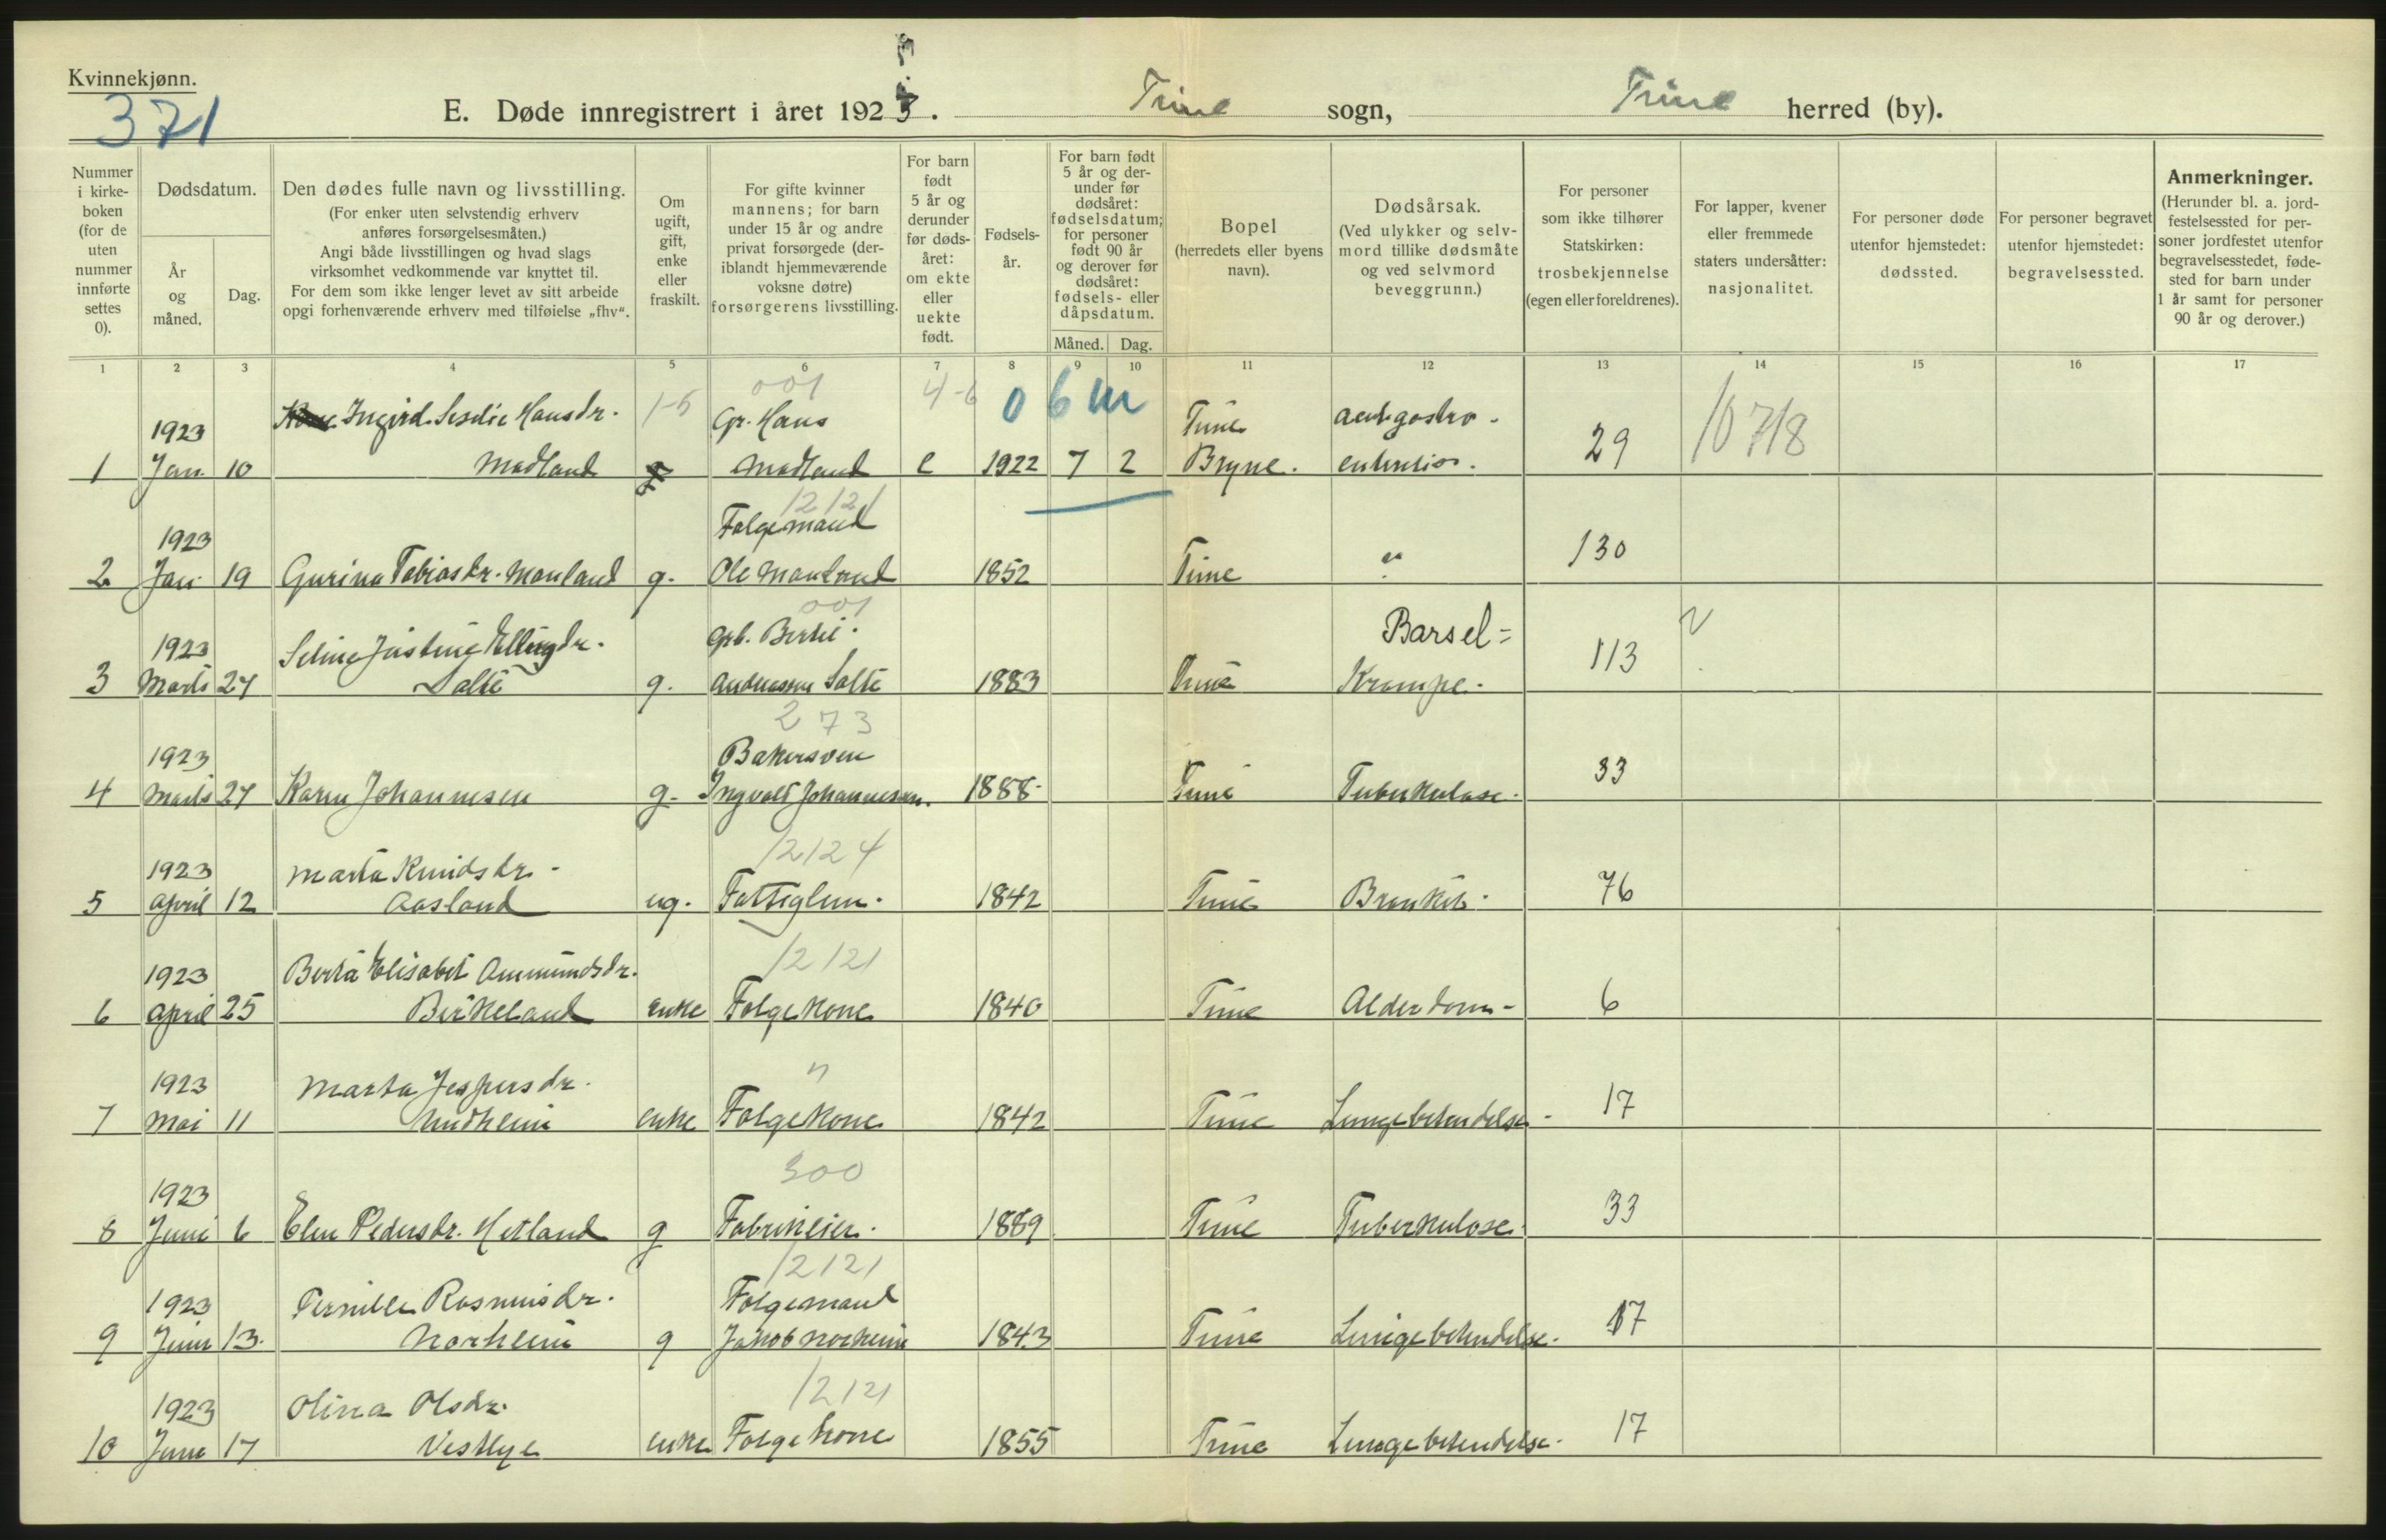 Kvinnekjønn.
371
E. Døde innregistrert i året 1923. Time sogn, Time herred (by).
Nummer i kirke-boken (for de uten nummer innførte settes 0).
Dødsdatum.
År og måned.
Dag.
Den dødes fulle navn og livsstilling.
(For enker uten selvstendig erhverv anføres forsørgelsesmåten.)
Angi både livsstillingen og hvad slags virksomhet vedkommende var knyttet til.
For dem som ikke lenger levet av sitt arbeide opgi forhenværende erhverv med tilføielse „fhv“.
Om ugift, gift, enke eller fraskilt.
For gifte kvinner mannens; for barn under 15 år og andre privat forsørgede (deriblandt hjemmeværende voksne døtre) forsørgerens livsstilling.
For barn født 5 år og derunder før døds-året: om ekte eller uekte født.
Fødsels-år.
For barn født 5 år og der-under før dødsåret: fødselsdatum; for personer født 90 år og derover før dødsåret: fødsels- eller dåpsdatum.
Måned. Dag.
Bopel (herredets eller byens navn).
Dødsårsak.
(Ved ulykker og selv-mord tillike dødsmåte og ved selvmord beveggrunn.)
For personer som ikke tilhører Statskirken: trosbekjennelse (egen eller foreldrenes).
For lapper, kvener eller fremmede staters undersåtter: nasjonalitet.
For personer døde utenfor hjemstedet: dødssted.
For personer begravet utenfor hjemstedet: begravelsessted.
Anmerkninger.
(Herunder bl. a. jord-festelsessted for per-soner jordfestet utenfor begravelsesstedet, føde-sted for barn under 1 år samt for personer 90 år og derover.)
1 2 3 4 5 6 7 8 9 10 11 12 13 14 15 16 17
001 4-6 0 6 m
Ingird Hansdr. 1-5 Gr. Hans Time
1923 10718
1 Jan 10 Madland Madland e 1922 7 2 Bryne. 29
12121
1923 Folgemand
2 Jan. 19 Gurina Tobiasdr. Mauland g. Ole Mauland 1852 Time ? 130
001
1923 Grb. Barsel=
3 Marts 27 Salte g. Andreassen Salte 1883 Time Krampe. 113
273
1923 Bakersven
4 Marts 27 Karen Johannesen g. Ingvald Johannesen. 1888 Time Tuberkulose. 33
12124
1923 Marta Knudsdr.
5 April 12 Aasland ug. Fattiglem. 1842 Time Bronkit. 76
12121
1923 Berta Elisabet Ommundsdr.
6 April 25 Birkeland enke Folgekone 1840 Time Alderdom 6
"
1923 Marta Jespersdr.
7 Mai 11 Undheim enke Folgekone 1842 Time Lungebetendelse 17
300
1923
8 Juni 6 Elen Pedersdr. Hetland g Fabrikeier. 1889 Time Tuberkulose. 33
12121
1923 Pernille Rasmusdr. Folgemand
9 Juni 13. Norheim g Jakob Norheim 1843 Time Lungebetendelse. 17
12121
1923 Olina Olsdr.
10 Juni 17 Vestlye enke Folgekone 1855 Time Lungebetendelse. 17